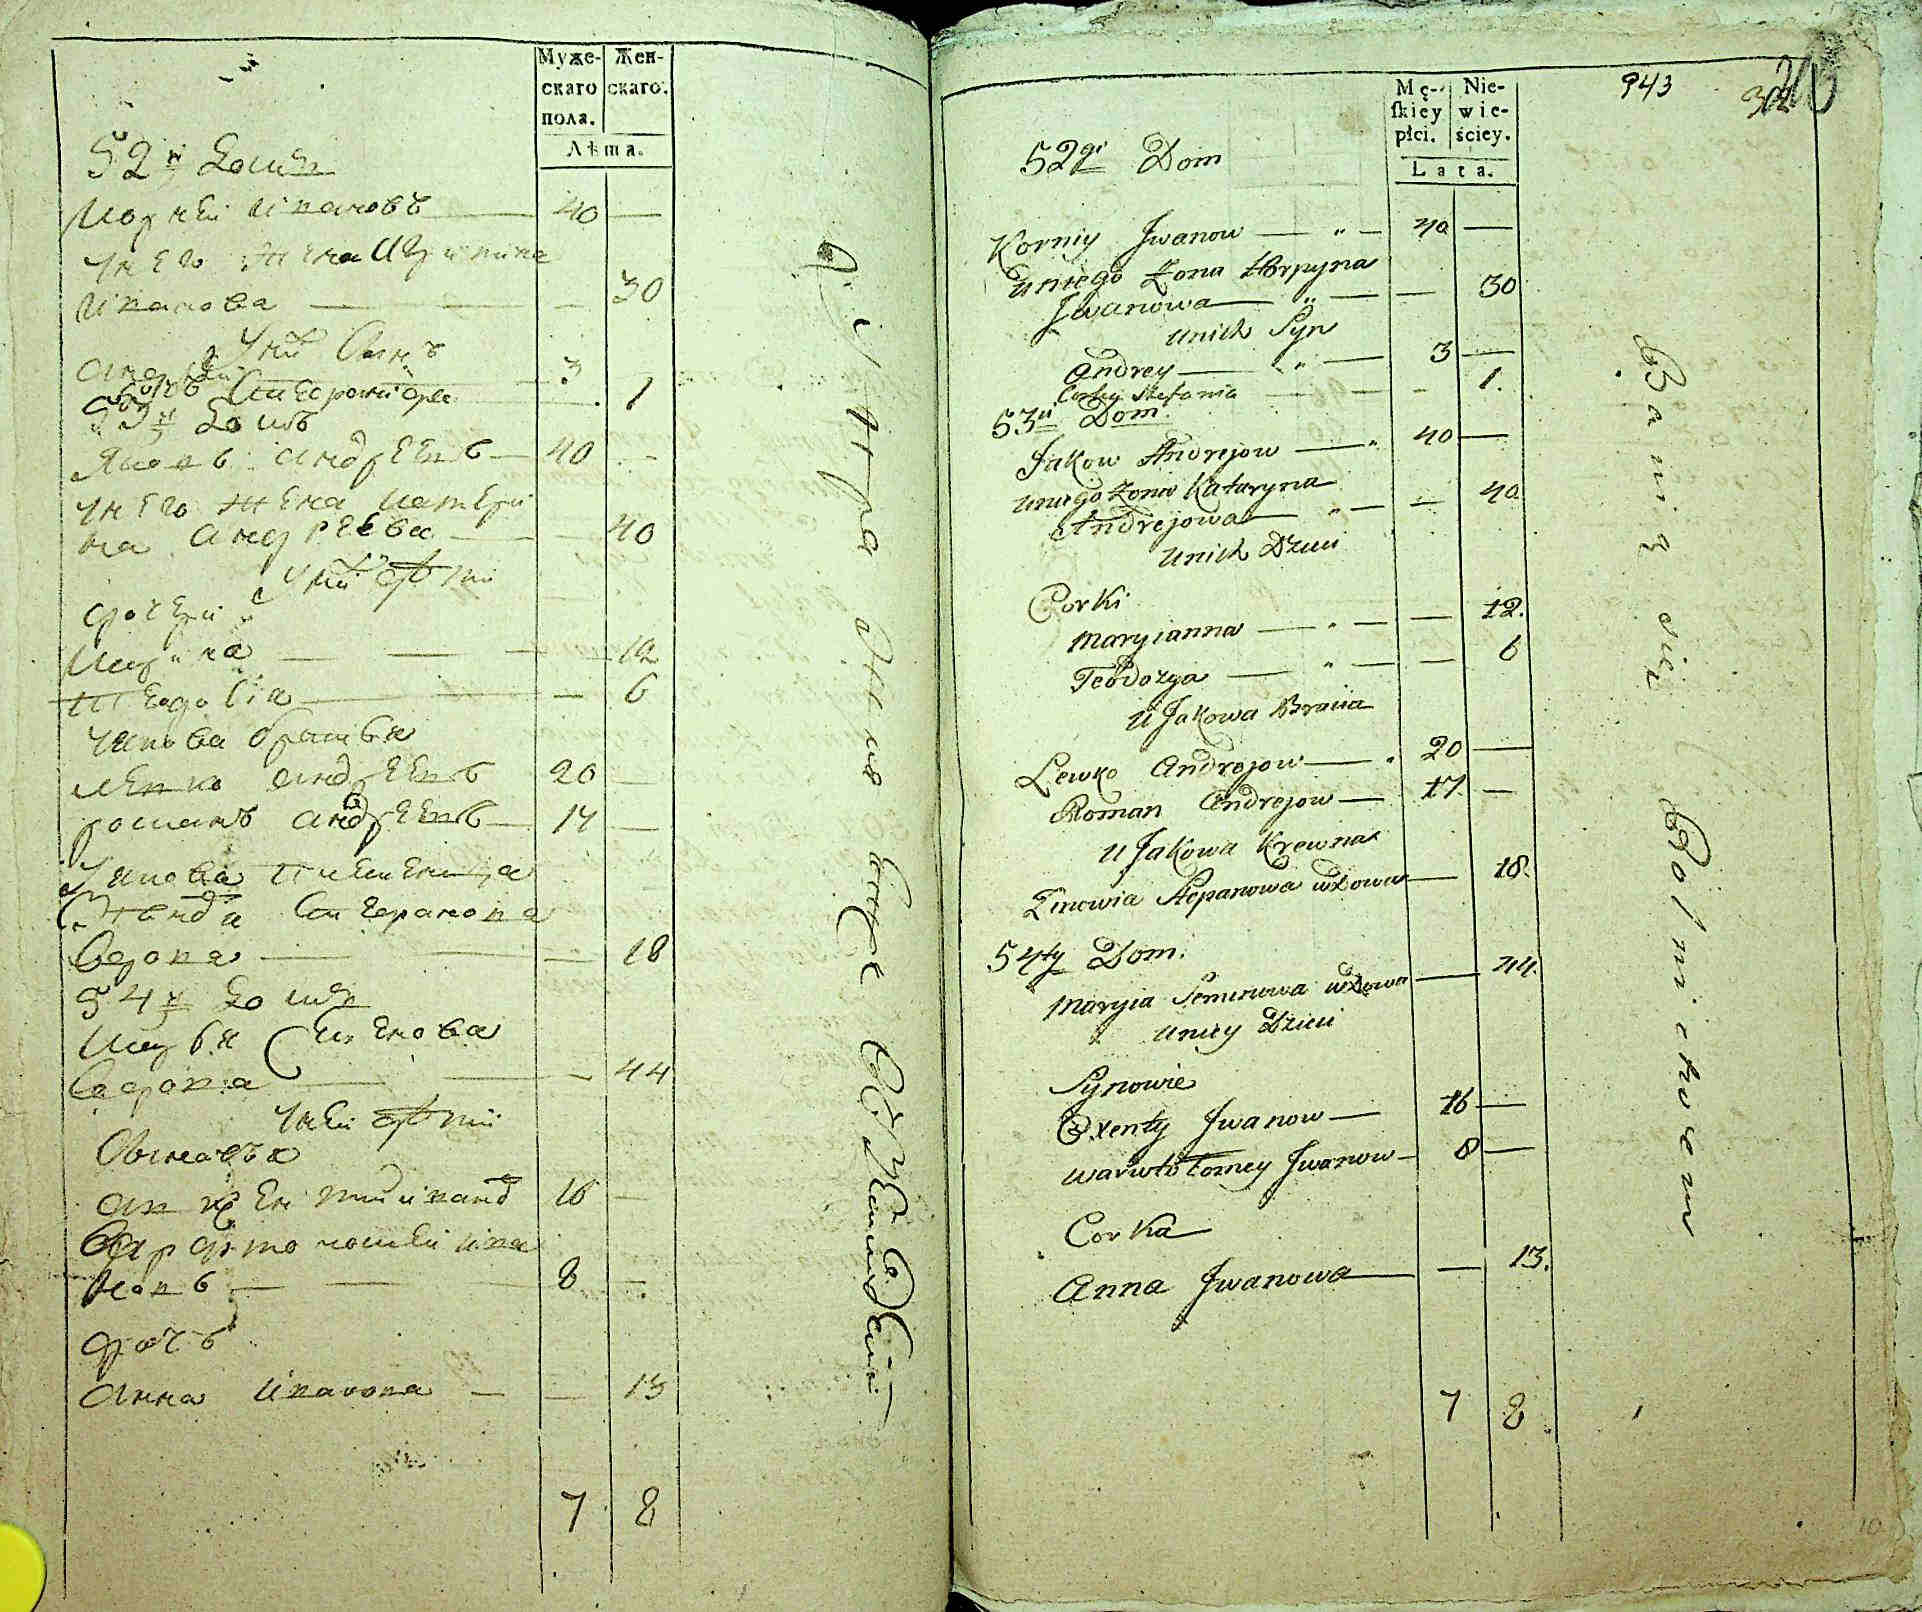 Муже-
скаго
пола.
Жен-
скаго.
Лѣта.
52й домъ
Корнѣй Ивановъ 40
У него жена
Иванова 30
У них Сынъ
Андрей 3
1
53й домъ
Яковъ Андреевъ 40
У него жена Катери
на Андреева 40
У них дѣти
дочери
Марина 12
Феодосiя 6
Якова братья
Левко Андреевъ 20
Романъ Андреевъ 17
У Якова племенница
Степанова
вдова 18
54й домъ
Марья Семенова
вдова 44
У ней дѣти
Сыновья
16
Вартоломей Ива
новъ 8
дочь
Анна Иванова 13
7 8
Mę-
skiey
płci.
Nie-
wie-
ściey.
Lata.
943
52gi Dom
Korniy Iwanow 40
u niego Żona Horpyna
Iwanowa 30
u nich Syn
Andrey 3
Corka Stefania 1.
53ci Dom
Jakow Andrejow 40
u niego Żona Kataryna
Andrejowa 40
u nich Dzieci
Corki
Maryianna 12.
Teodozya 6
u Jakowa Bracia
Lewko Andrejow 20
Roman Andrejow 17
u Jakowa Krewna
Zinowia Stepanowa wdowa 18.
54ty Dom.
Maryia Semenowa wdowa 44.
u niey Dzieci
Synowie
Oxenty Iwanow 16
Warwłotomey Iwanow 8
Corka
Anna Iwanowa 13.
7 8
Bawią się Rolnictwem